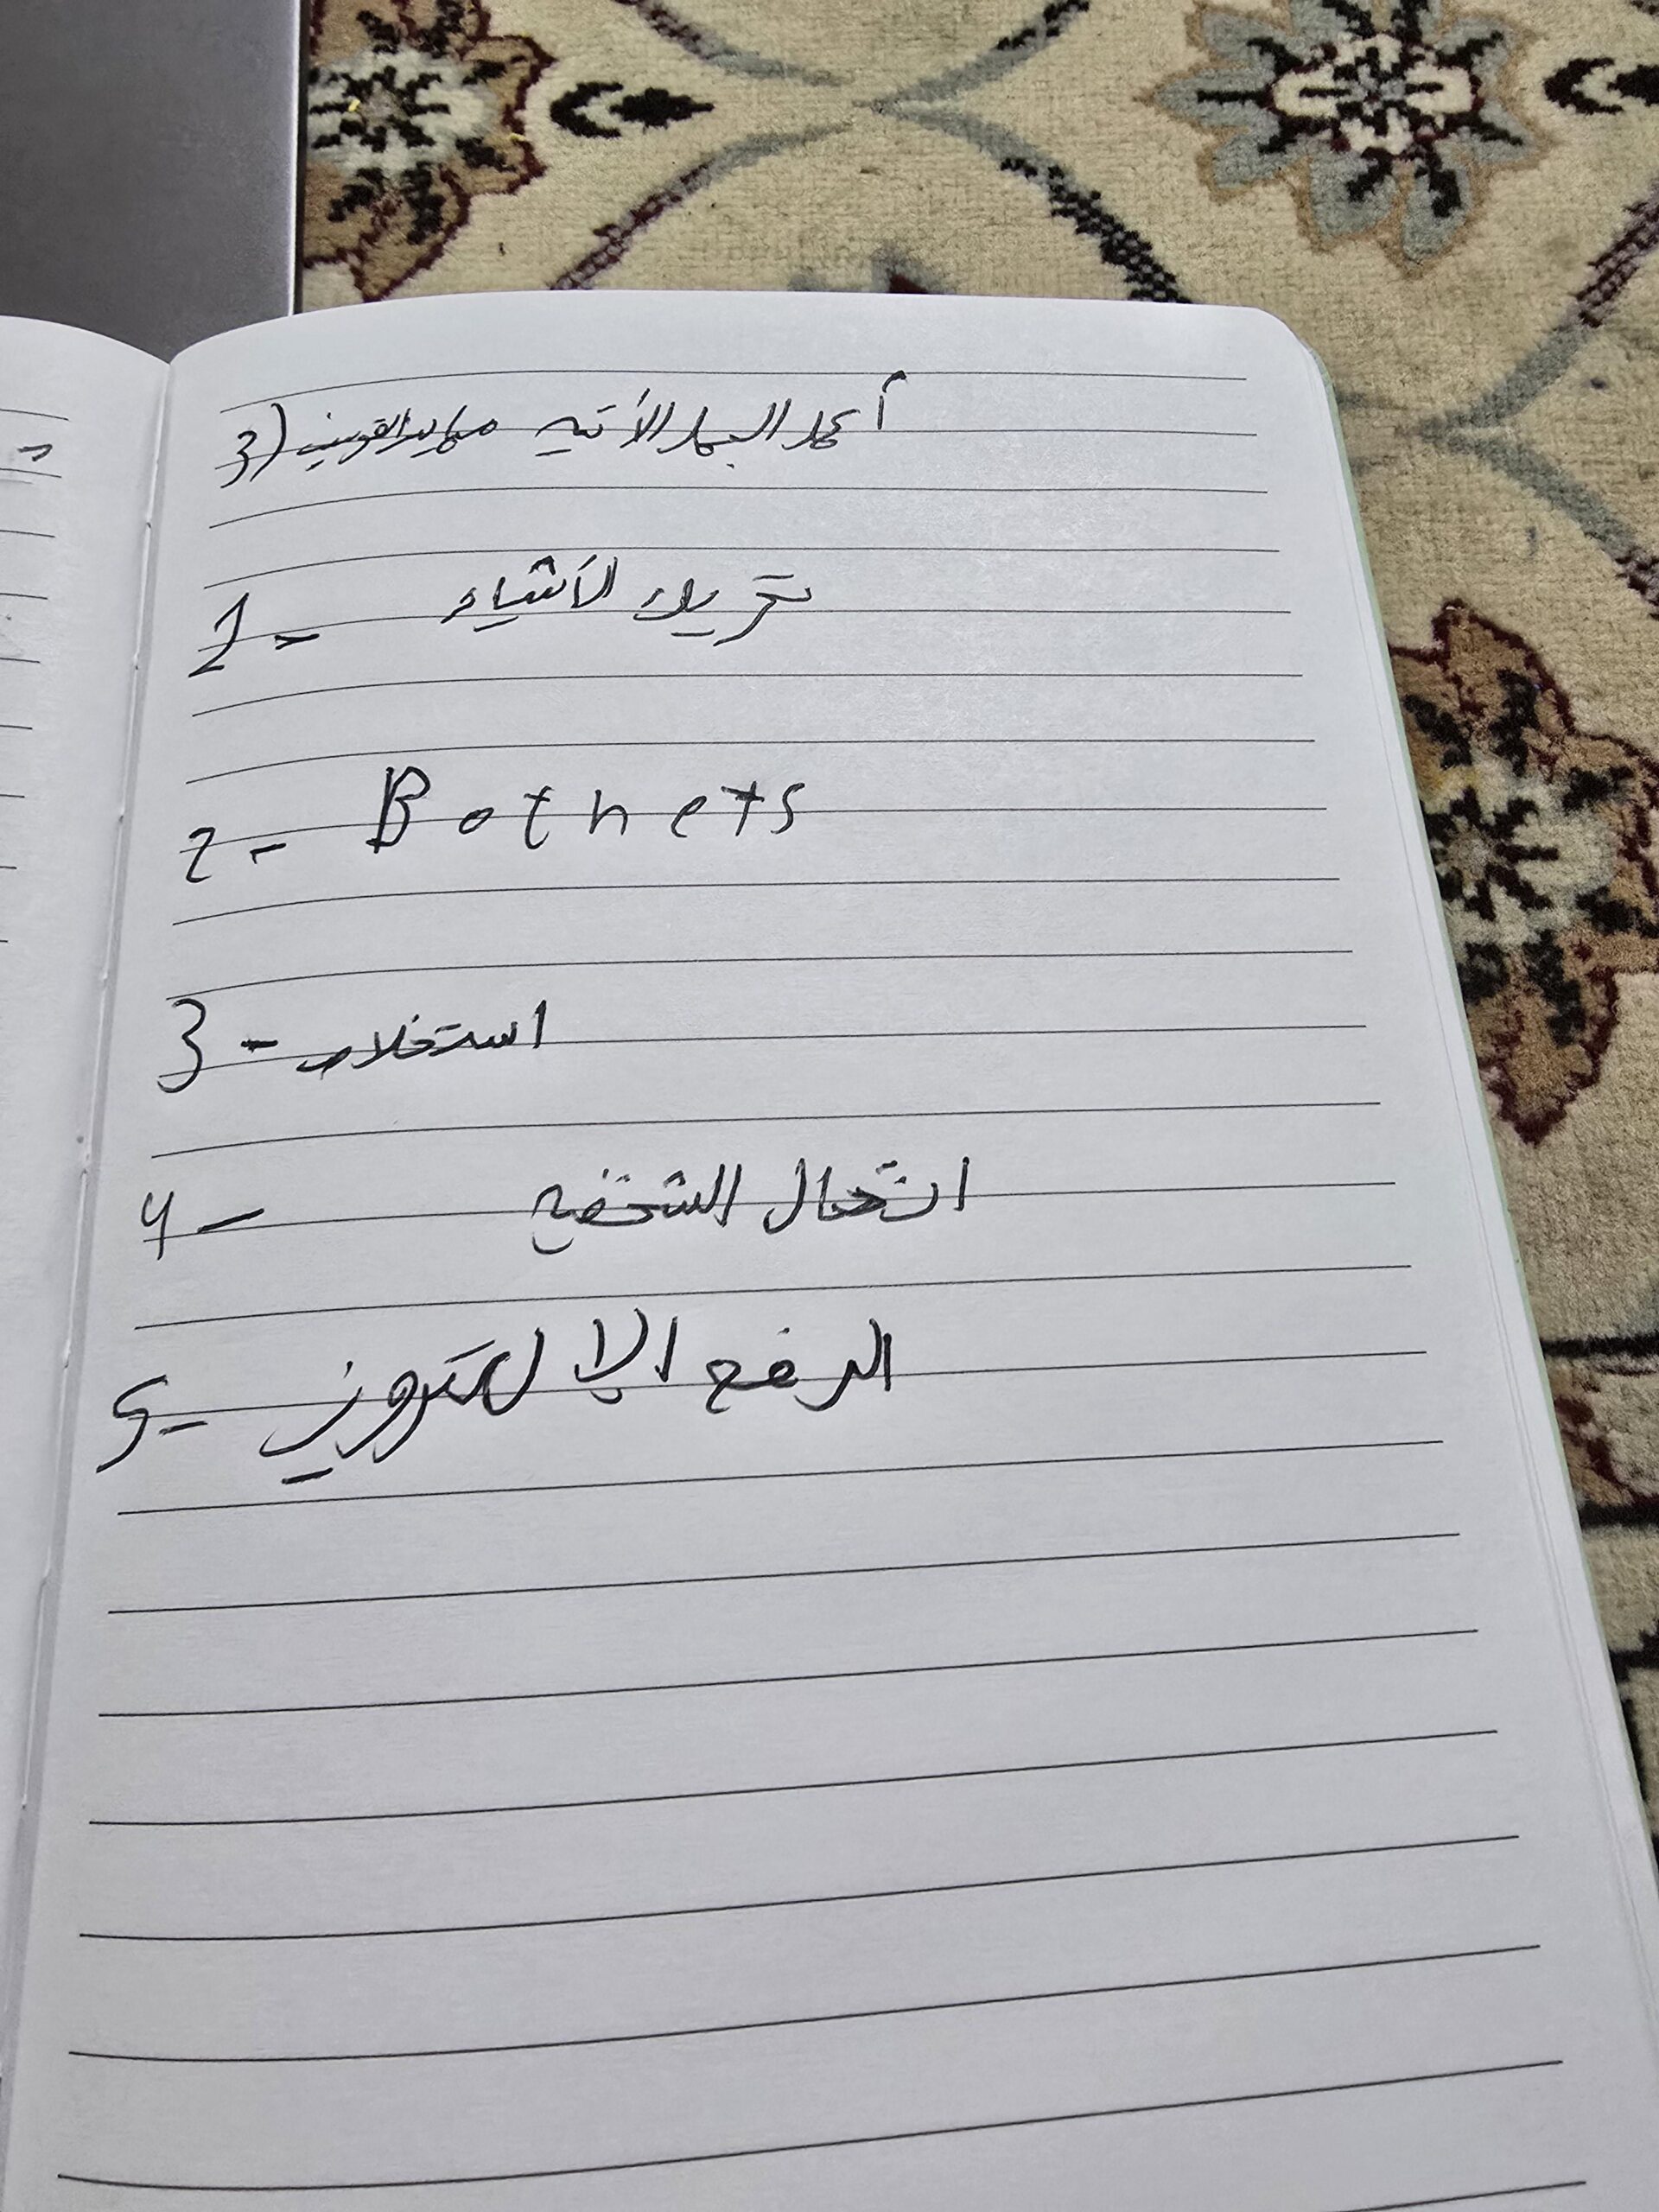 3) أكمل الجمل الأتيه مما بين القوسين
1- تحريك الأشياء
2- Botnets
3- استخلاص
4- انتحال الشخصيه
5- الدفع الإلكتروني